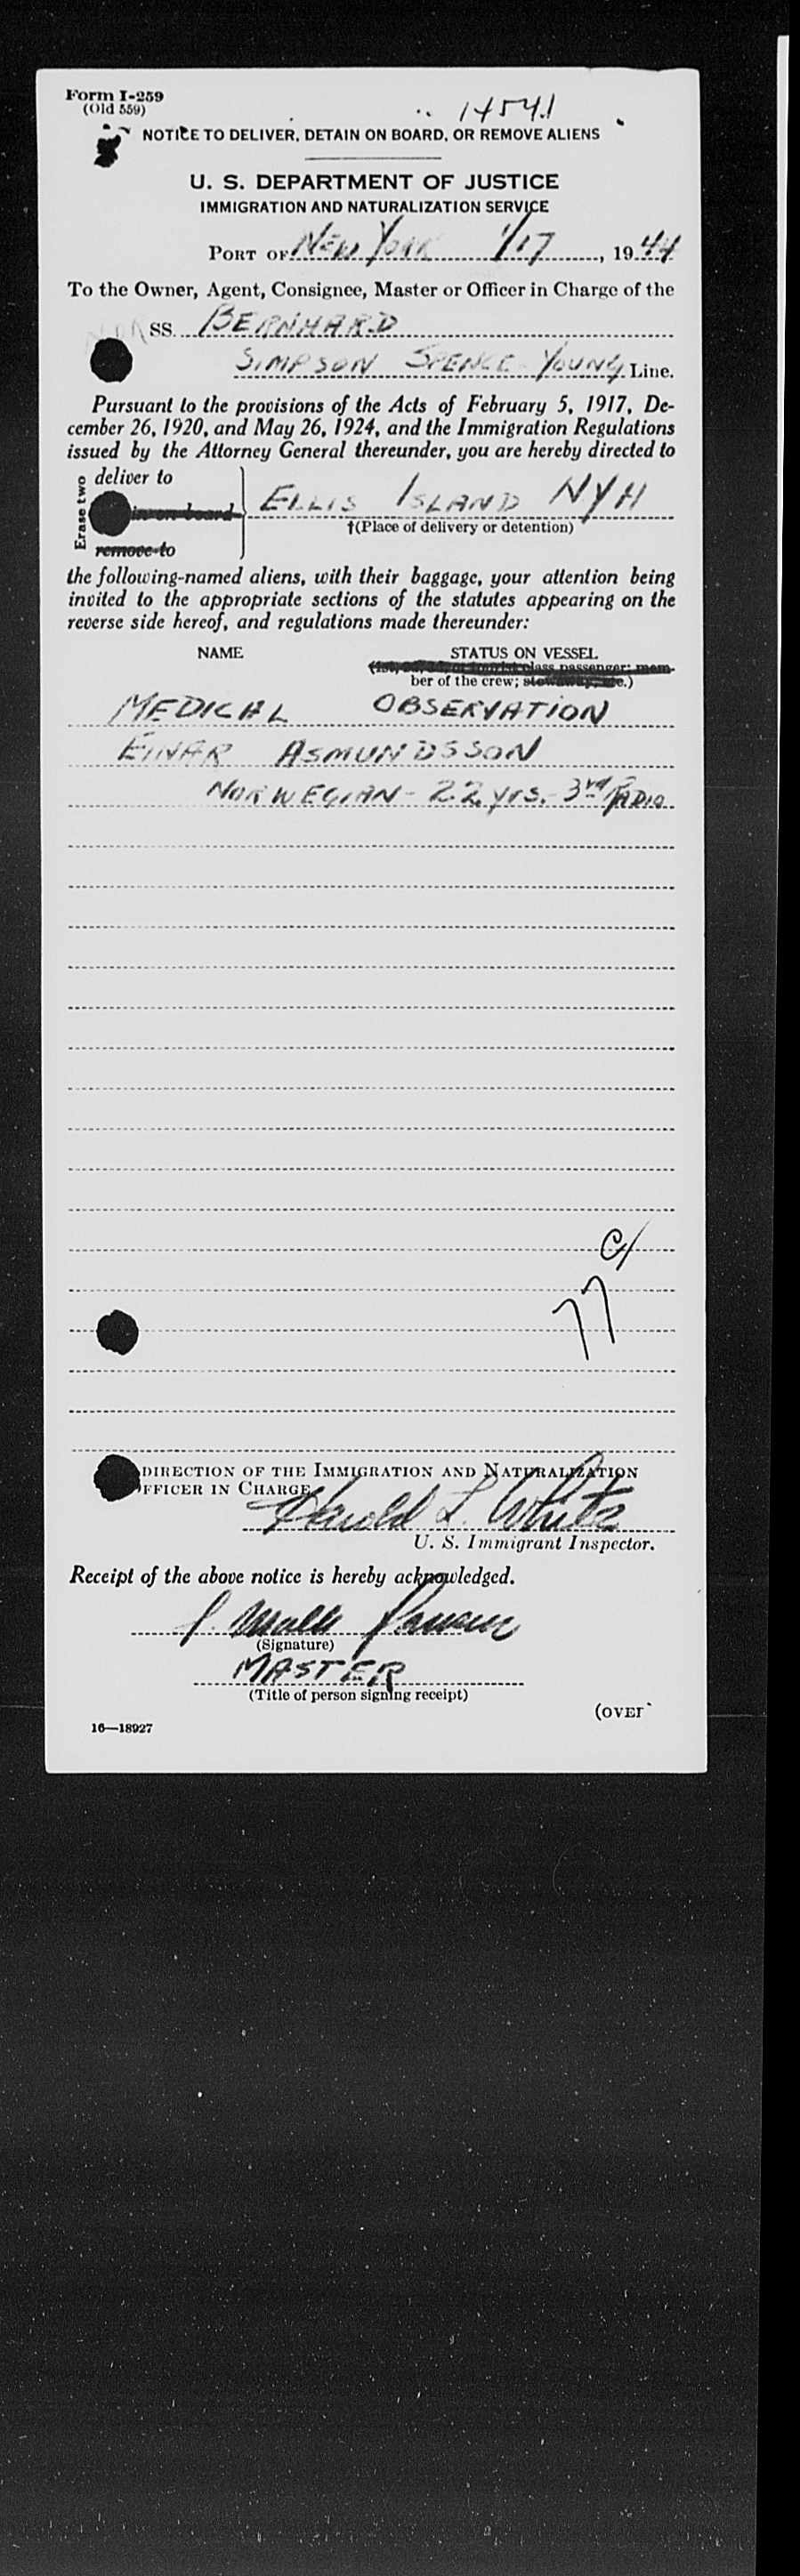 Form I-259
(Old 559)
14541
NOTICE TO DELIVER, DETAIN ON BOARD, OR REMOVE ALIENS
U. S. DEPARTMENT OF JUSTICE
IMMIGRATION AND NATURALIZATION SERVICE
PORT OF NEW YORK 1/17, 1944
To the Owner, Agent, Consignee, Master or Officer in Charge of the
NOR SS. BERNHARD
SIMPSON SPENCE YOUNG Line.
Pursuant to the provisions of the Acts of February 5, 1917, De-
cember 26, 1920, and May 26, 1924, and the Immigration Regulations
issued by the Attorney General thereunder, you are hereby directed to
Erase two
deliver to
in on board
ELLIS ISLAND NYH
†(Place of delivery or detention)
remove to
the following-named aliens, with their baggage, your attention being
invited to the appropriate sections of the statutes appearing on the
reverse side hereof, and regulations made thereunder:
NAME STATUS ON VESSEL
class passenger; mem-
ber of the crew;
MEDICAL OBSERVATION
EINAR ASMUNDSSON
NORWEGIAN - 22 yrs. - 3rd RADIO
77
DIRECTION OF THE IMMIGRATION AND NATURALIZATION
OFFICER IN CHARGE
Harold L. White
U. S. Immigrant Inspector.
Receipt of the above notice is hereby acknowledged.
(Signature)
MASTER
(Title of person signing receipt)
(OVER
16—18927